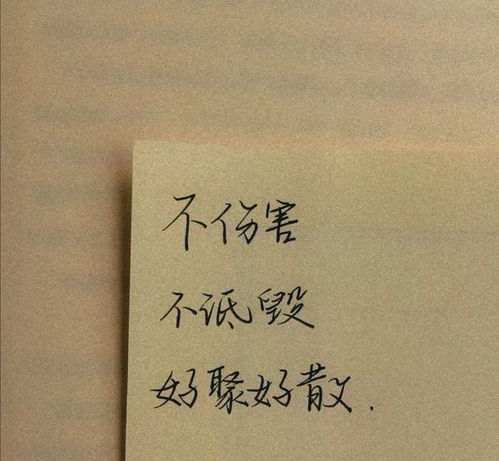 不伤害
不诋毁
好聚好散.